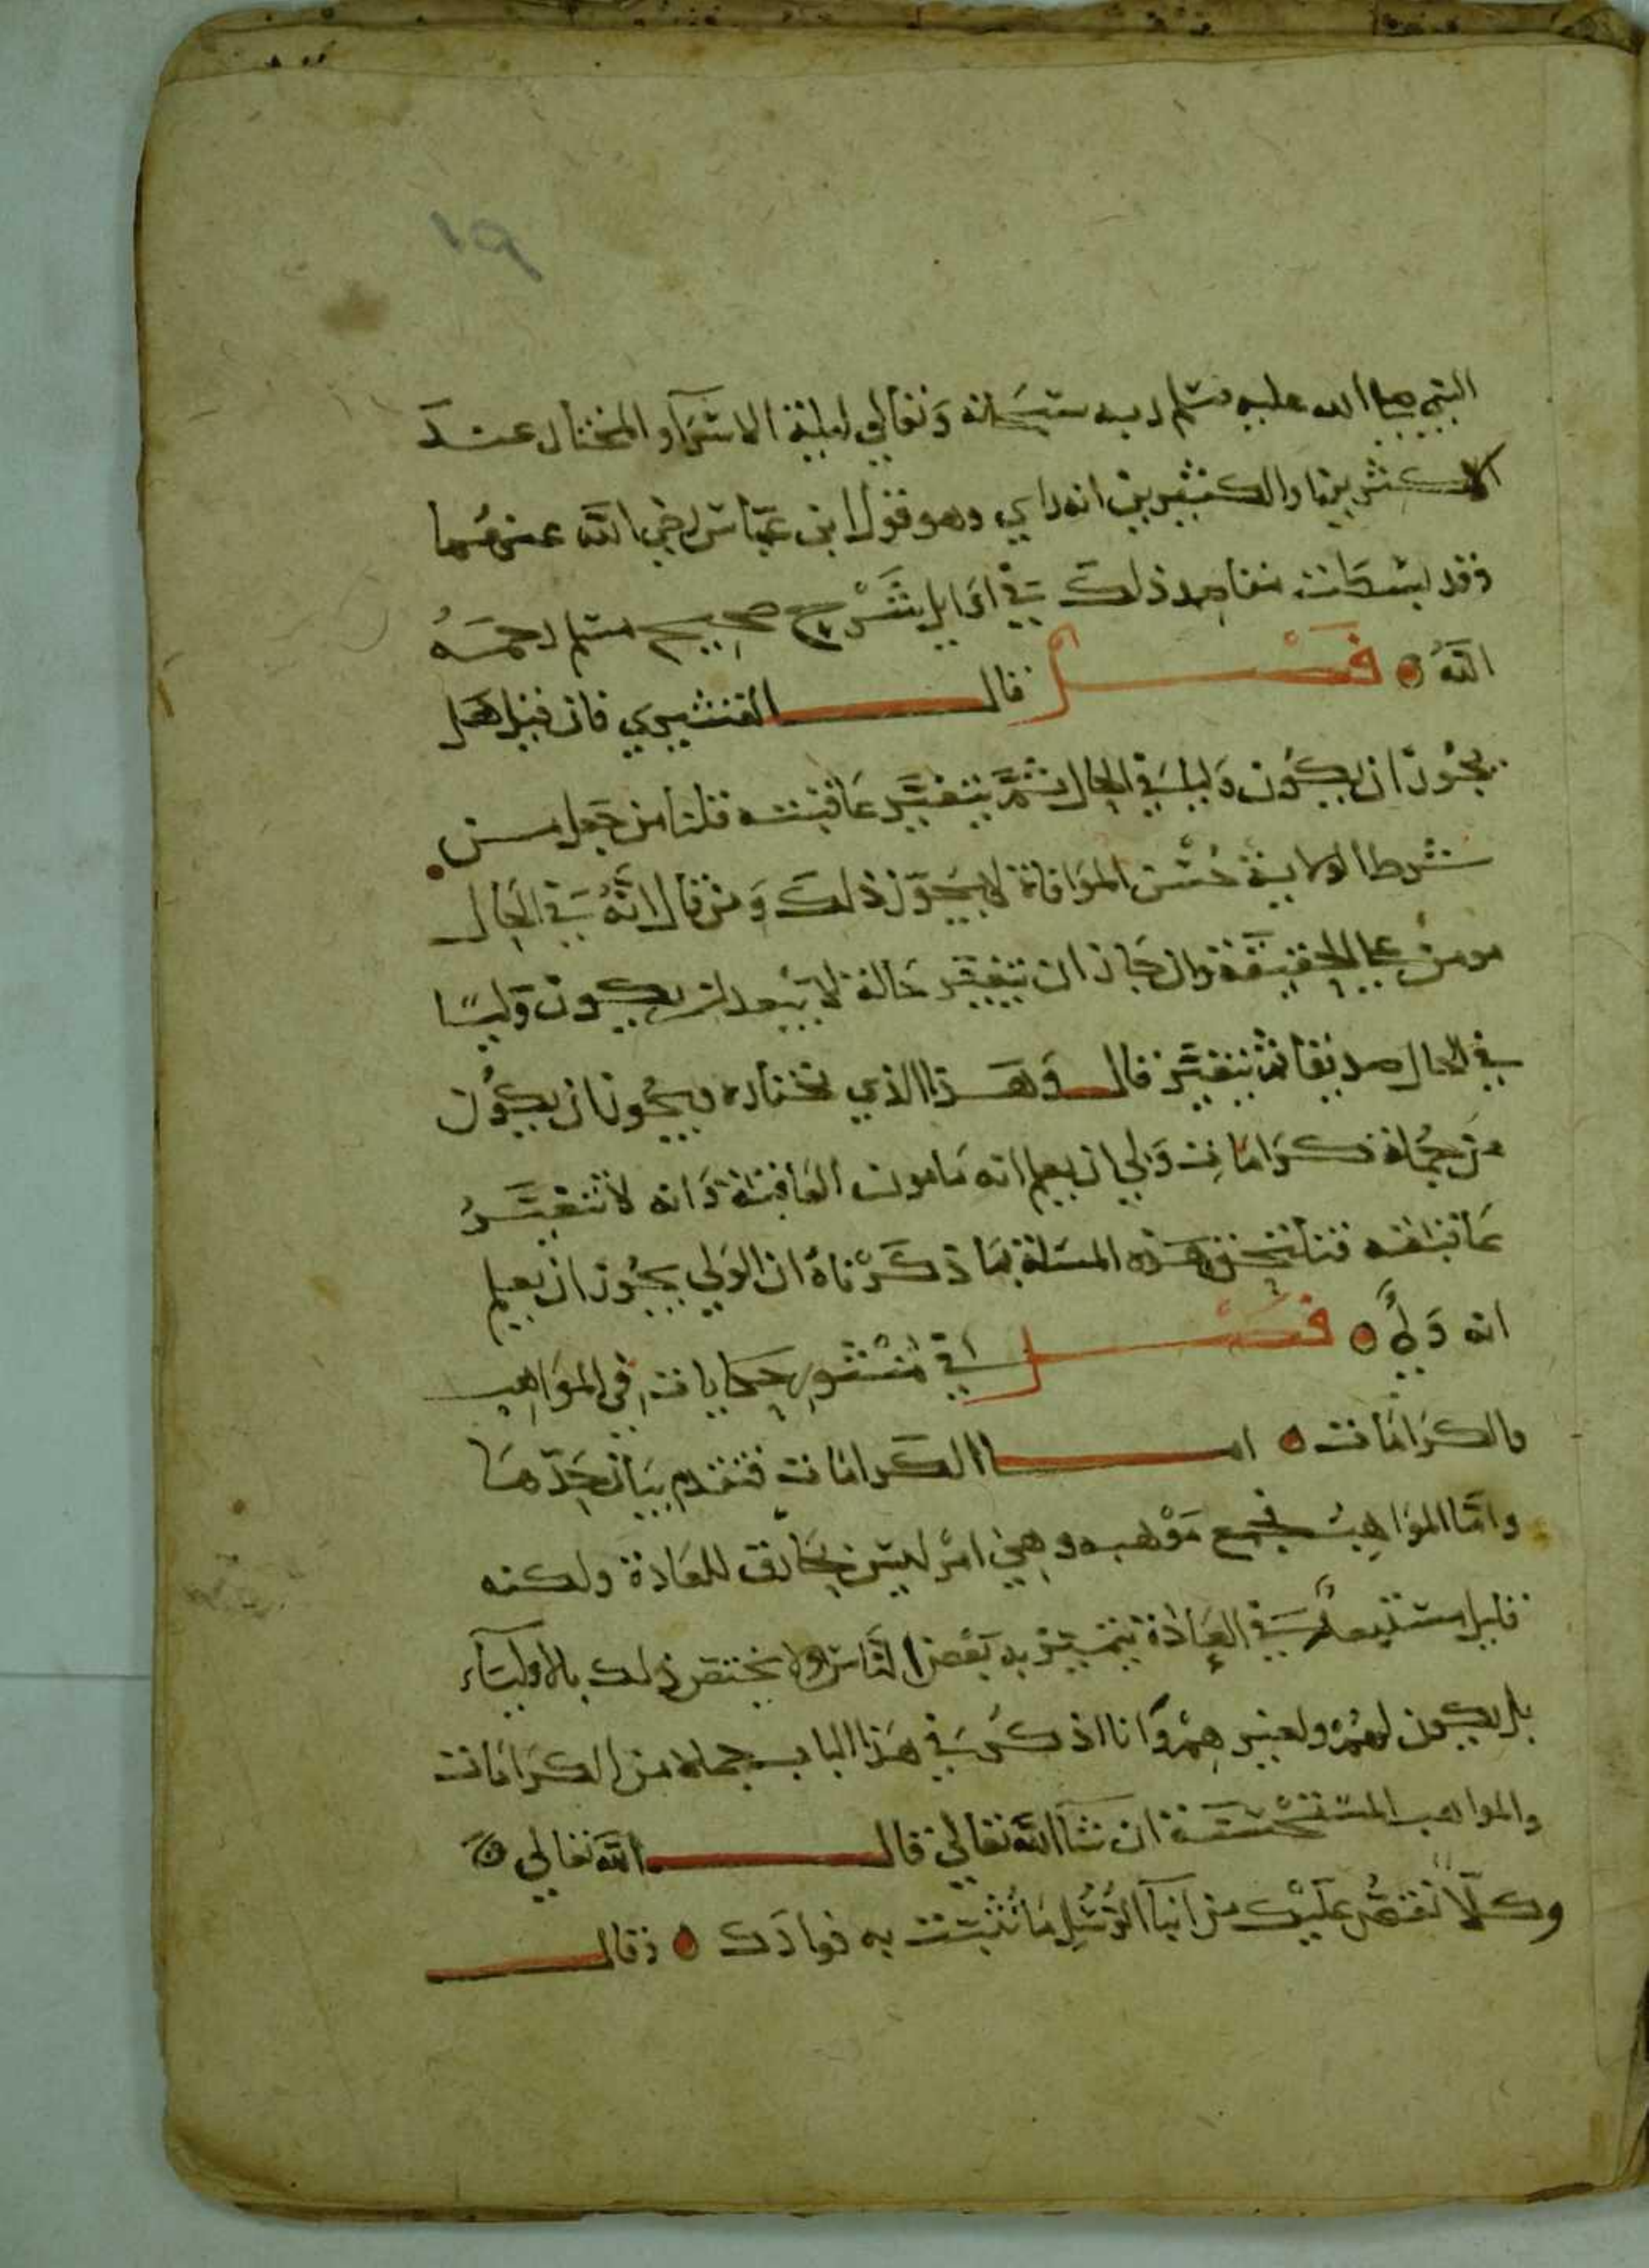 ١٩
النبي صلى الله عليه وسلم ربه سبحانه وتعالي ليلة الاسرآء والمختار عند
الاكثرين او الكثيرين انه راي وهو قول ابن عباس رضي الله عنهما
وقد بسطت مقاصد ذلك في اوايل شرح صحيح مسلم رحمه
الله فصل قال القشيري فان قيل هل
يجوز ان يكون وليا في الحال ثم يتغير عاقبته قلنا من جعل من
شرط الولاية حسن الموافاة لا يجوز ذلك ومن قال انه في الحال
مومن على الحقيقة وان جاز ان يتغير حاله لا يبعد ان يكون وليا
في الحال صديقا ثم يتغير قال وهذا الذي نختاره ويجوز ان يكون
من جملة كرامات ولي ان يعلم انه مامون العاقبة وانه لا تتغير
عاقبته فتلتحق هذه المسلة بما ذكرناه ان الولي يجوز ان يعلم
انه ولي فصل في منثور حكايات في المواهب
والكرامات اما الكرامات فتقدم بيان حدها
واما المواهب فجمع موهبه وهي امر ليس بخارق للعادة ولكنه
قليل مستبعد في العادة يتميز به بعض الناس ولا يختص ذلك بالاولياء
بل يكون لهم ولغيرهم وانا اذكر في هذا الباب جملة من الكرامات
والمواهب المستحسنة ان شآ الله تعالي قال الله تعالي
وكلا نقص عليك من انبآ الرسل ما نثبت به فوادك وقال